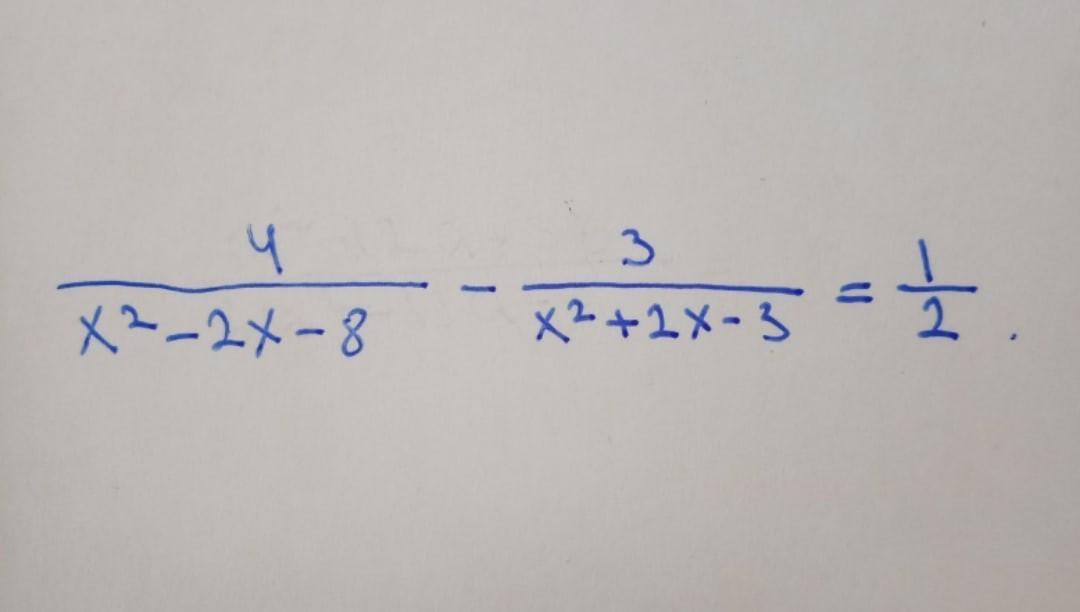 4/(x²-2x-8) - 3/(x²+2x-3) = 1/2.